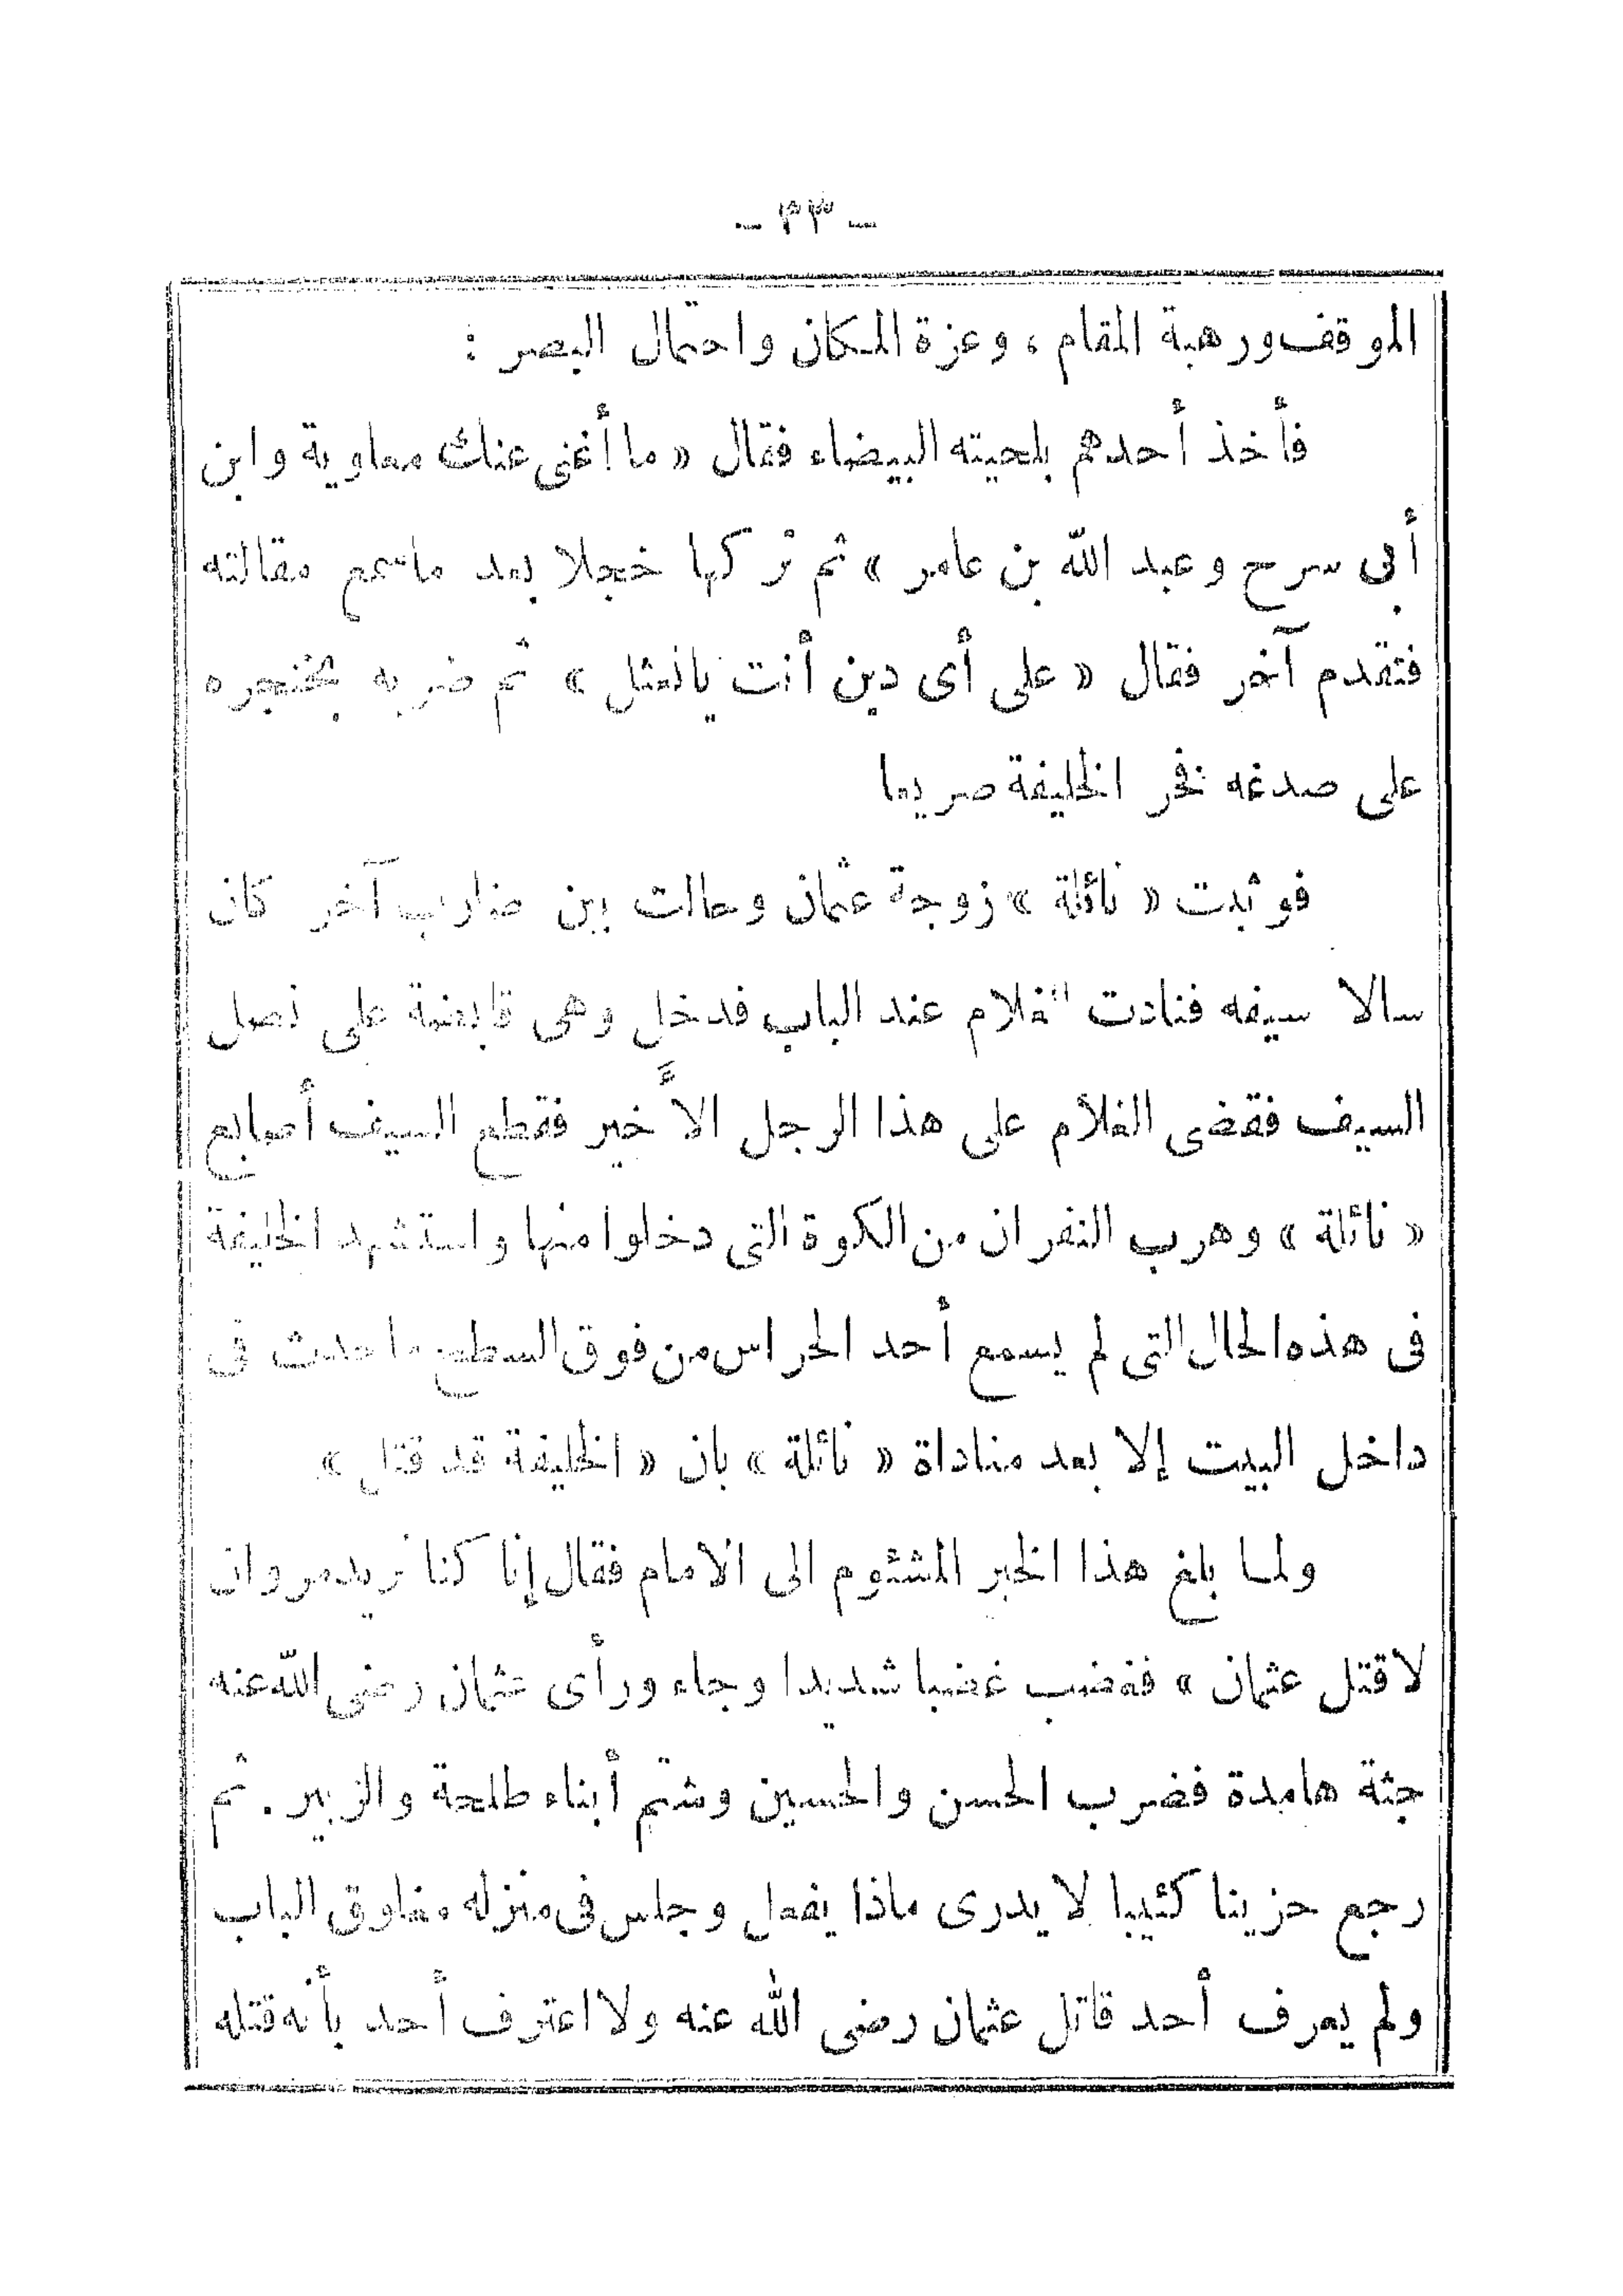 — ٣٣ —
الموقف ورهبة المقام ، وعزة المكان واحتمال البصر :
فأخذ أحدهم بلحيته البيضاء فقال « ما أغنى عنك معاوية وابن
أبى سرح وعبد الله بن عامر » ثم تركها خجلا بعد ماسمع مقالته
فتقدم آخر فقال « على أى دين أنت يانعثل » ثم ضربه بخنجره
على صدغه فخر الخليفة صريعا
فوثبت « نائلة » زوجة عثمان وحالت بين ضارب آخر كان
سالا سيفه فنادت الغلام عند الباب فدخل وهى قابضة على نصل
السيف فقضى الغلام على هذا الرجل الأخير فقطع السيف أصابع
« نائلة » وهرب النفران من الكوة التى دخلوا منها واستشهد الخليفة
فى هذه الحال التى لم يسمع أحد الحراس من فوق السطح ما حدث فى
داخل البيت إلا بعد مناداة « نائلة » بان « الخليفة قد قتل »
ولما بلغ هذا الخبر المشئوم الى الامام فقال إنا كنا نريد مروان
لا قتل عثمان » فغضب غضبا شديدا وجاء ورأى عثمان رضى الله عنه
جثة هامدة فضرب الحسن والحسين وشتم أبناء طلحة والزبير . ثم
رجع حزينا كئيبا لا يدرى ماذا يفعل وجلس فى منزله مغلوق الباب
ولم يعرف أحد قاتل عثمان رضى الله عنه ولا اعترف أحد بأنه قتله